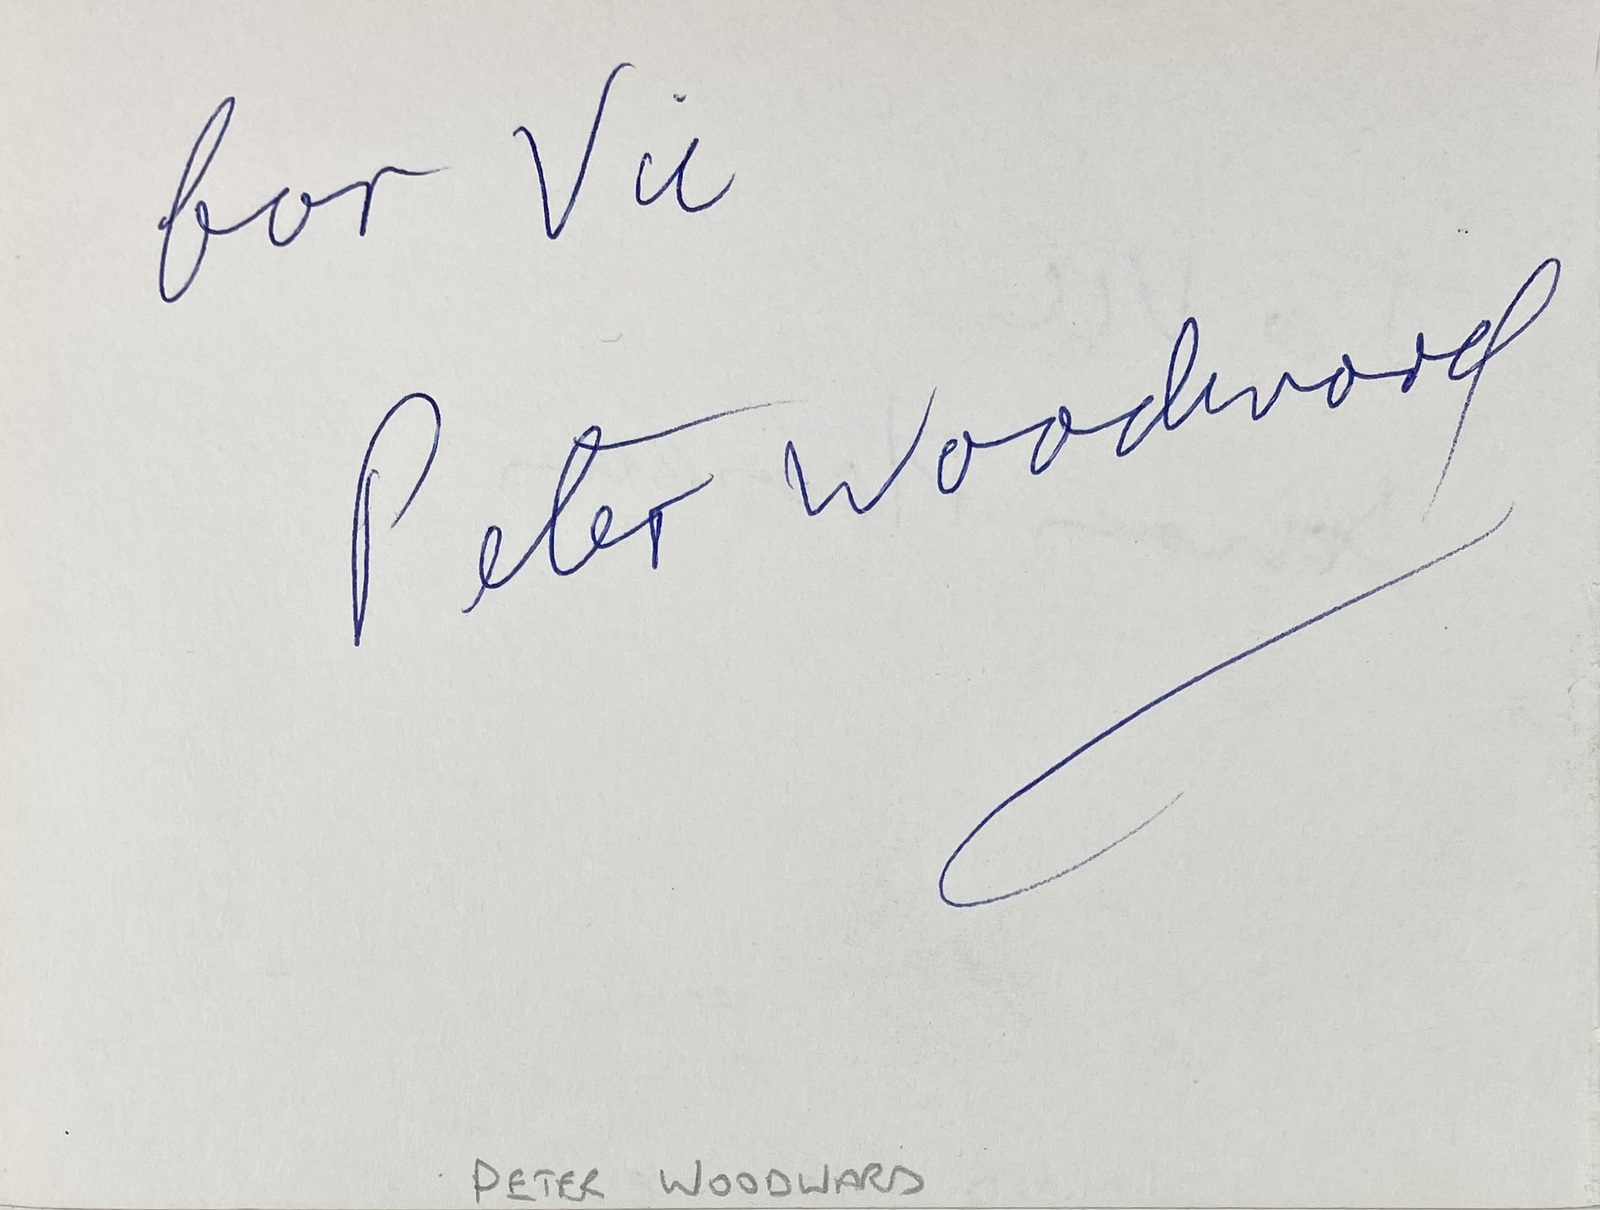 for Vic
Peter Woodward
PETER WOODWARD